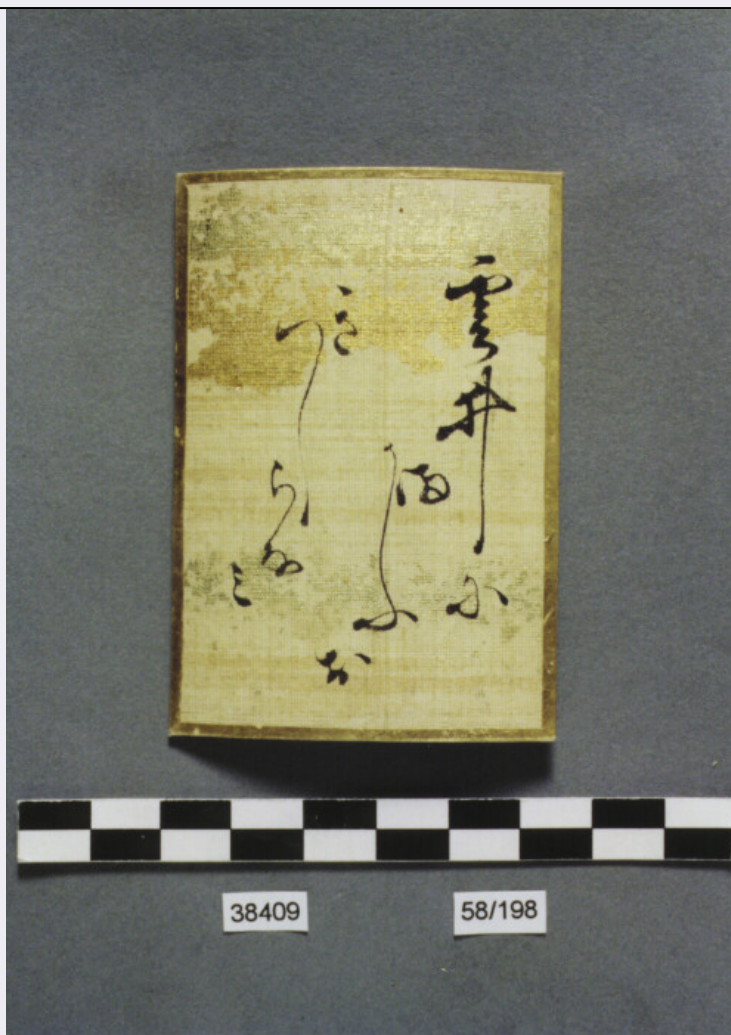 雲井に
まかふお
きつしらなミ
38409
58/198